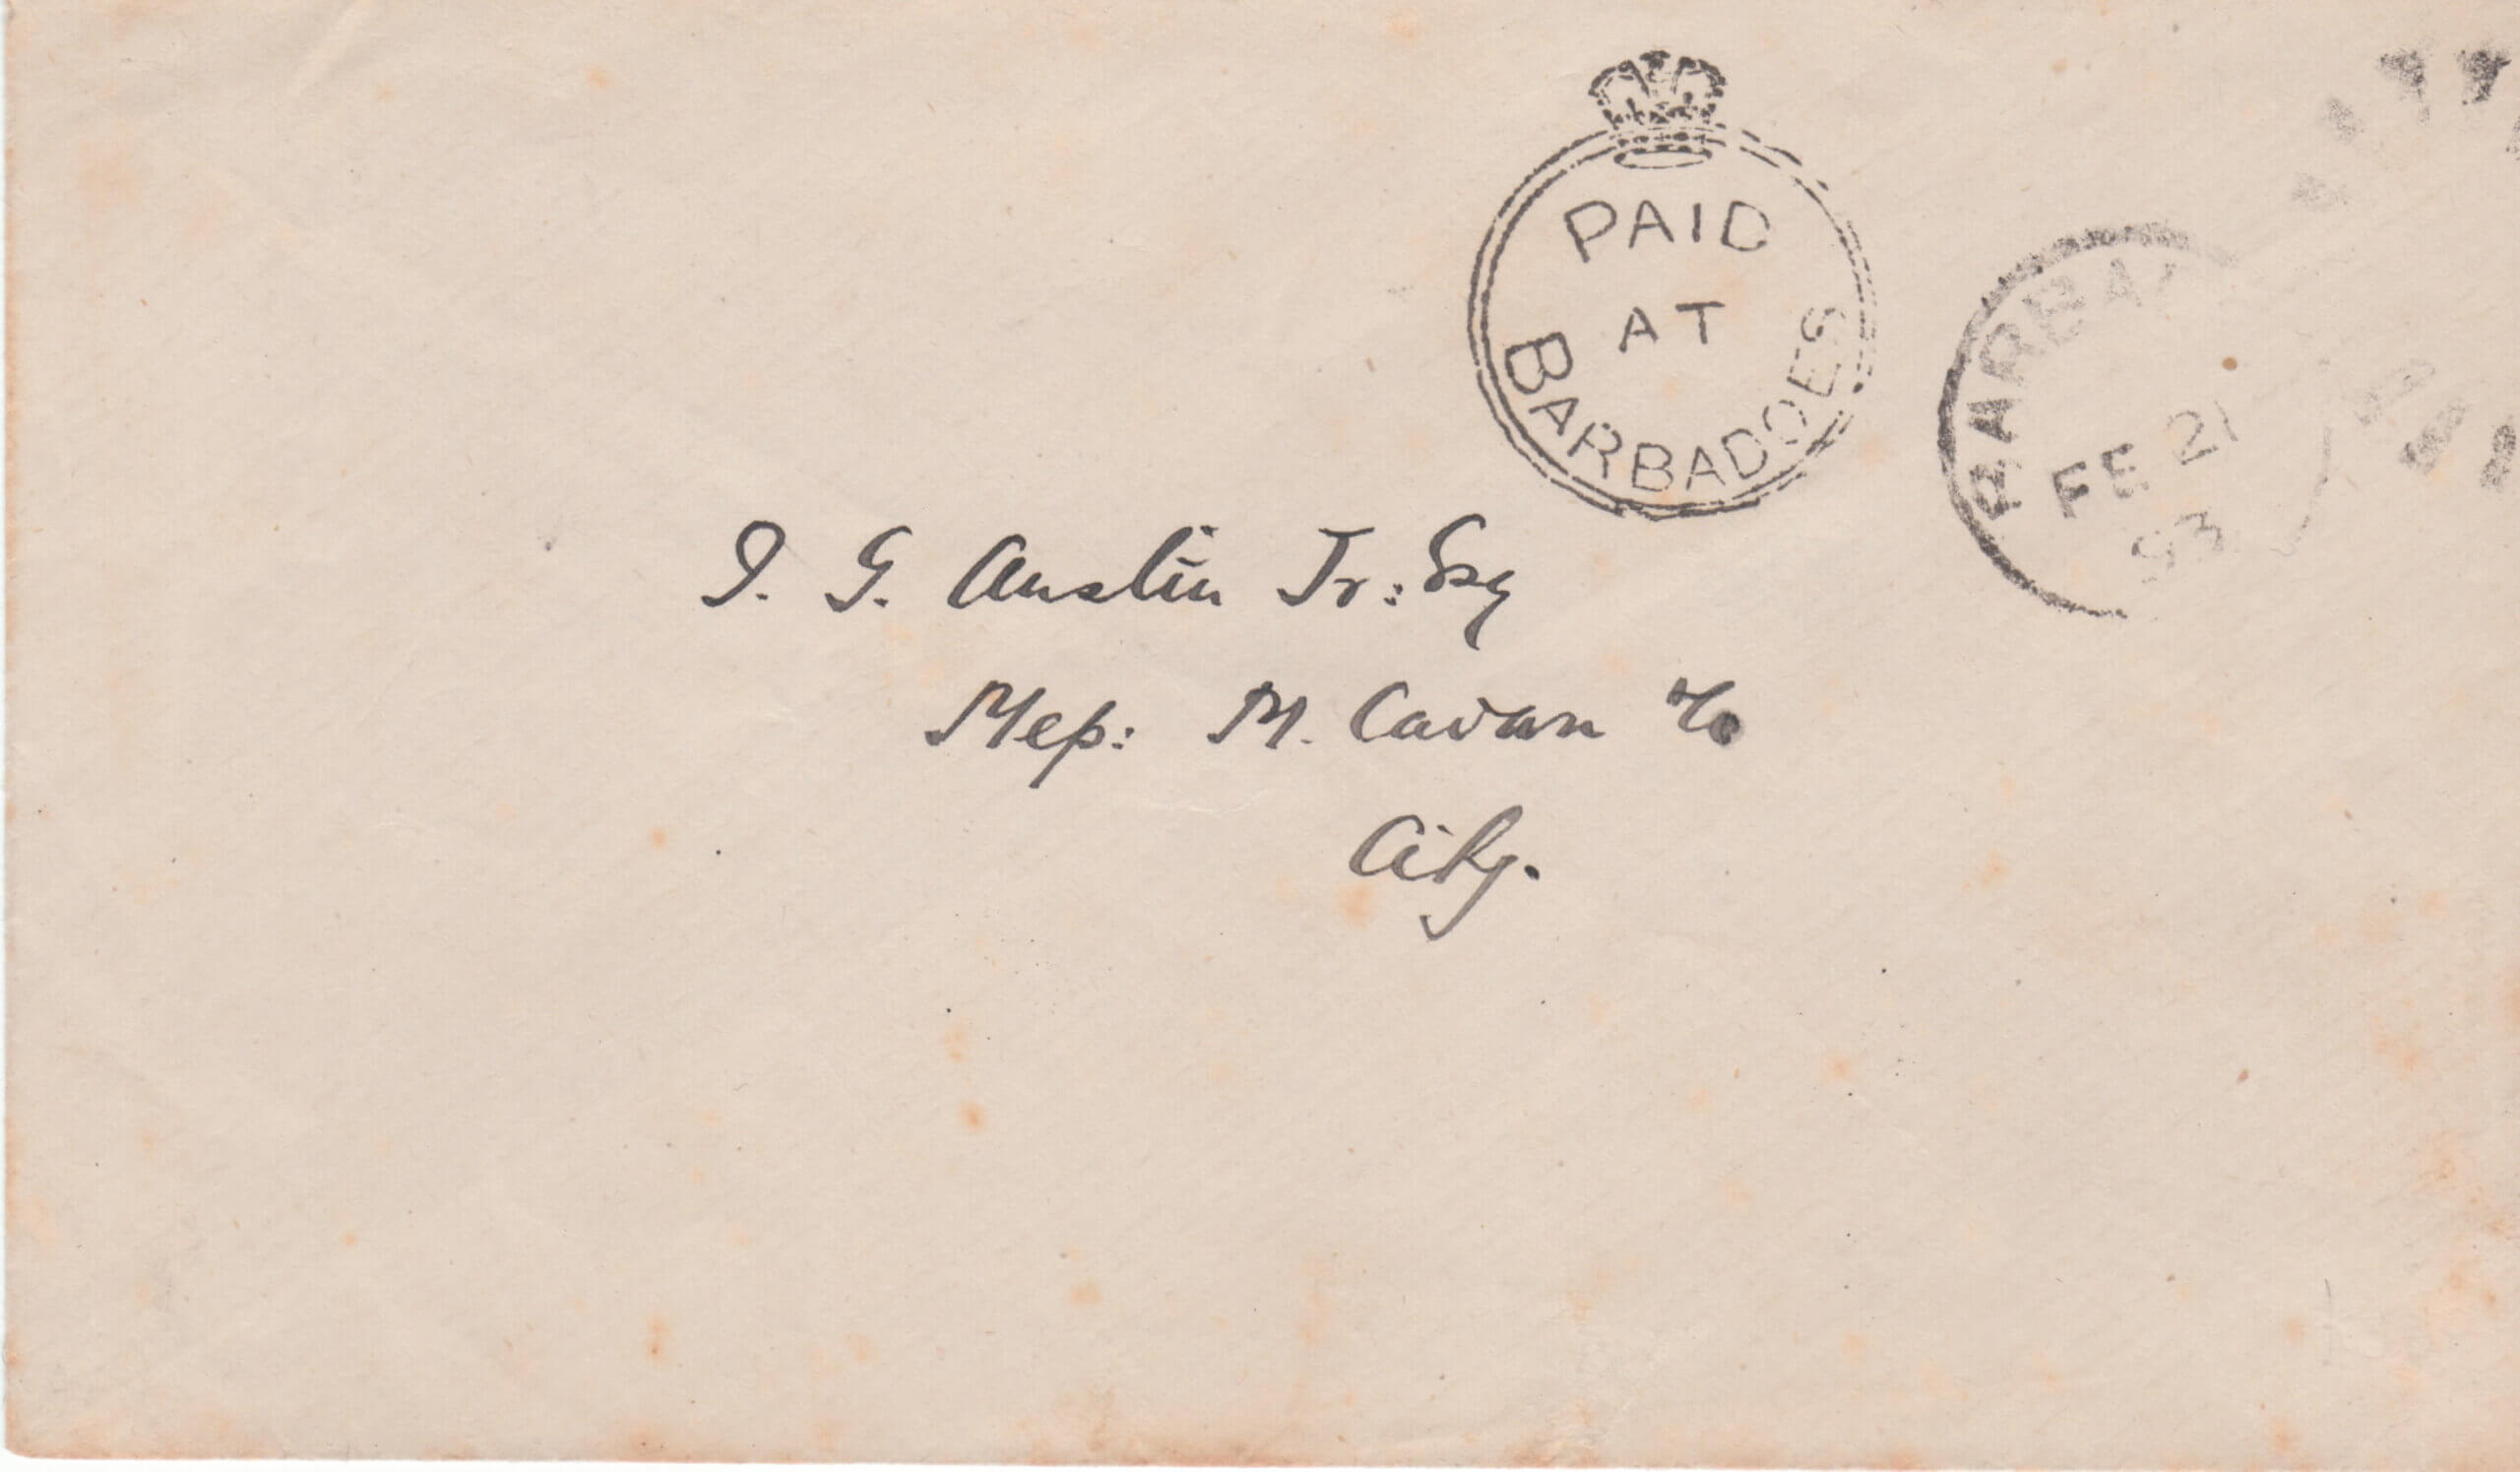 PAID
AT
BARBADOES
BARBA
FE 21
93
J. G. Austin Jr: Esq
Mess: M. Cavan & Co
City.